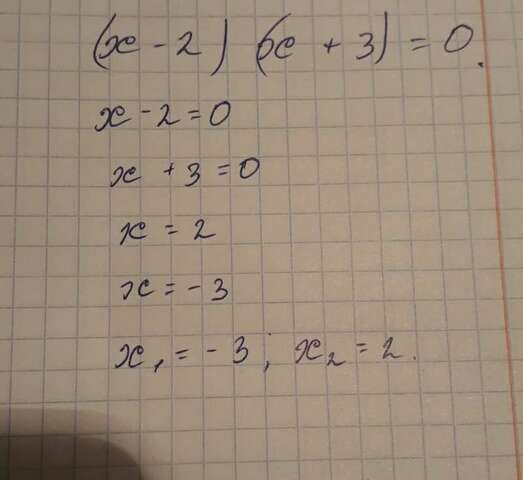 (x - 2) (x + 3) = 0.
x - 2 = 0
x + 3 = 0
x = 2
x = - 3
x₁ = - 3; x₂ = 2.